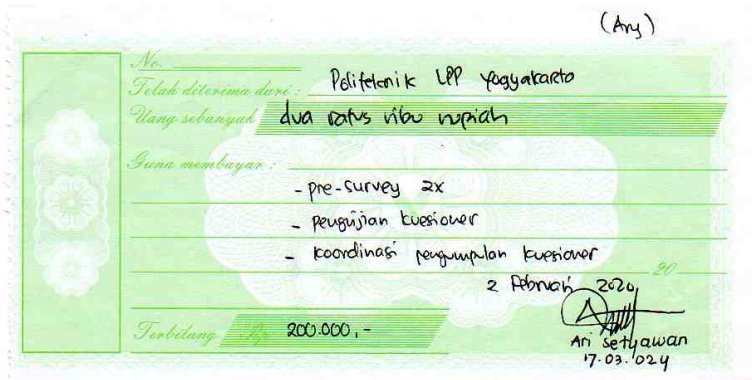 (Ary)
No.
Telah diterima dari : Politeknik LPP Yogyakarta
Uang sebanyak dua ratus ribu rupiah
Guna membayar :
- pre-survey 2x
- pengujian kuesioner
- koordinasi pengumpulan kuesioner
20
2 Februari 2020
Terbilang Rp. 200.000,-
Ari Setyawan
17.03.024